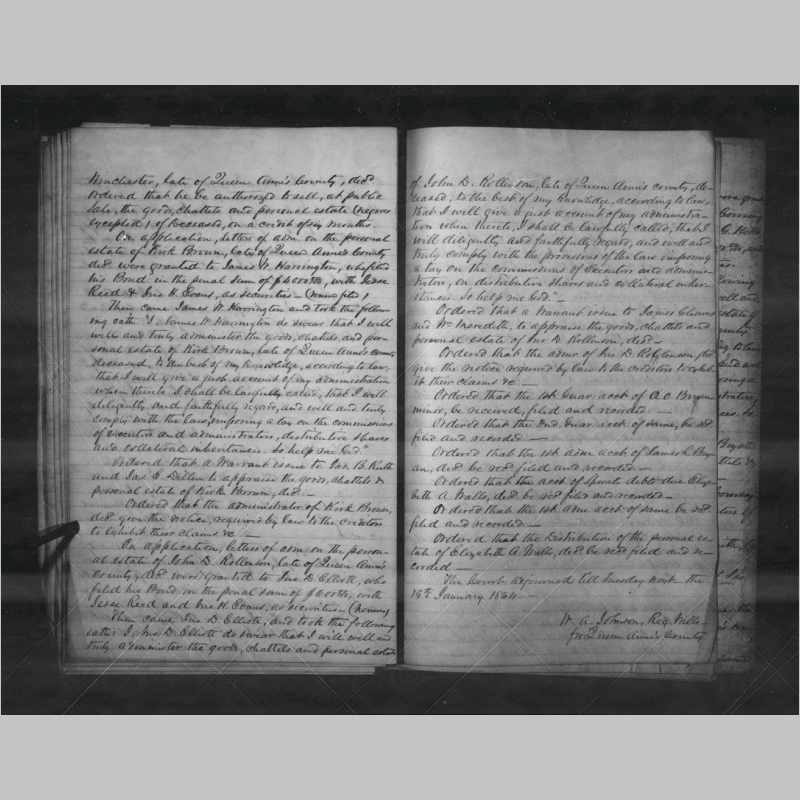 Winchester, late of Queen Ann's County, decd
ordered that he be authorized to sell, at public
sale, the goods, chattels and personal estate (negroes
excepted) of Deceased, on a credit of six months.
On application, letters of adm. on the personal
estate of Kirk Brown, late of Queen Ann's County
decd were granted to James W. Harrington, who filed
his Bond in the penal sum of $4000, with Jesse
Reed & Jno H. Evans, as securities (
Then came James W. Harrington and took the follow-
ing oath "I James W Harrington do swear that I will
well and truly administer the goods, chattels, and per-
sonal estate of Kirk Brown, late of Queen Ann's County
deceased, to the best of my knowledge, according to law,
that I will give a just account of my administration
when thereto I shall be lawfully called, that I will
diligently and faithfully regard, and well and truly
comply with the Law, imposing a tax on the commissions
of executors and administrators, distributive shares
and collateral inheritance. So help me God."
Ordered that a Warrant issue to Jas. B.
and Jas to appraise the goods, chattels &
personal estate of Kirk Brown, decd. —
Ordered that the administrator of Kirk Brown,
decd. give the notice, required by law to the creditors
to exhibit their claims &c —
On application, letters of adm. on the person-
al estate of John D. Rollerson, late of Queen Ann's
County, decd were granted to Jno D. Elliott, who
filed his Bond, in the penal sum of $, with
Jesse Reed and Jno H. Evans, as securities (
Then came Jno D. Elliott, and took the following
oath: I, Jno D. Elliott do swear that I will well and
truly administer the goods, chattels and personal estate
of John D. Rollerson, late of Queen Ann's county, de-
ceased, to the best of my knowledge, according to law,
that I will give a just account of my administra-
tion when thereto, I shall be lawfully called, that I
will diligently and faithfully regard, and well and
truly comply with the provisions of the Law imposing
a tax on the commissions of Executors and adminis-
trators, on distributive shares and collateral inher-
itances. So help me God." —
Ordered that a Warrant issue to James
and Wm Meredith, to appraise the goods, chattels and
personal estate of Jno D. Rollerson, decd —
Ordered that the admr of Jno D.
give the notice required by law to the creditors to exhib-
it their claims &c —
Ordered that the 1st Guar. acct of A C Bryan
minor, be received, filed and recorded. —
Ordered that the 2nd Guar acct of same, be recd
filed and recorded —
Ordered that the 1st adm. acct of James L Bry-
an, decd be recd filed and recorded. —
Ordered that the acct of Spirat debts due Eliza-
beth A Walls, decd be recd filed and recorded —
Ordered that the 1st adm acct of same be recd
filed and recorded —
Ordered that the Distribution of the personal es-
tate of Elizabeth A. Walls, decd be recd filed and re-
corded —
The Court adjourned till Tuesday next the
January 1864 —
W. A. Johnson, Reg. Wills
for Queen Ann's County